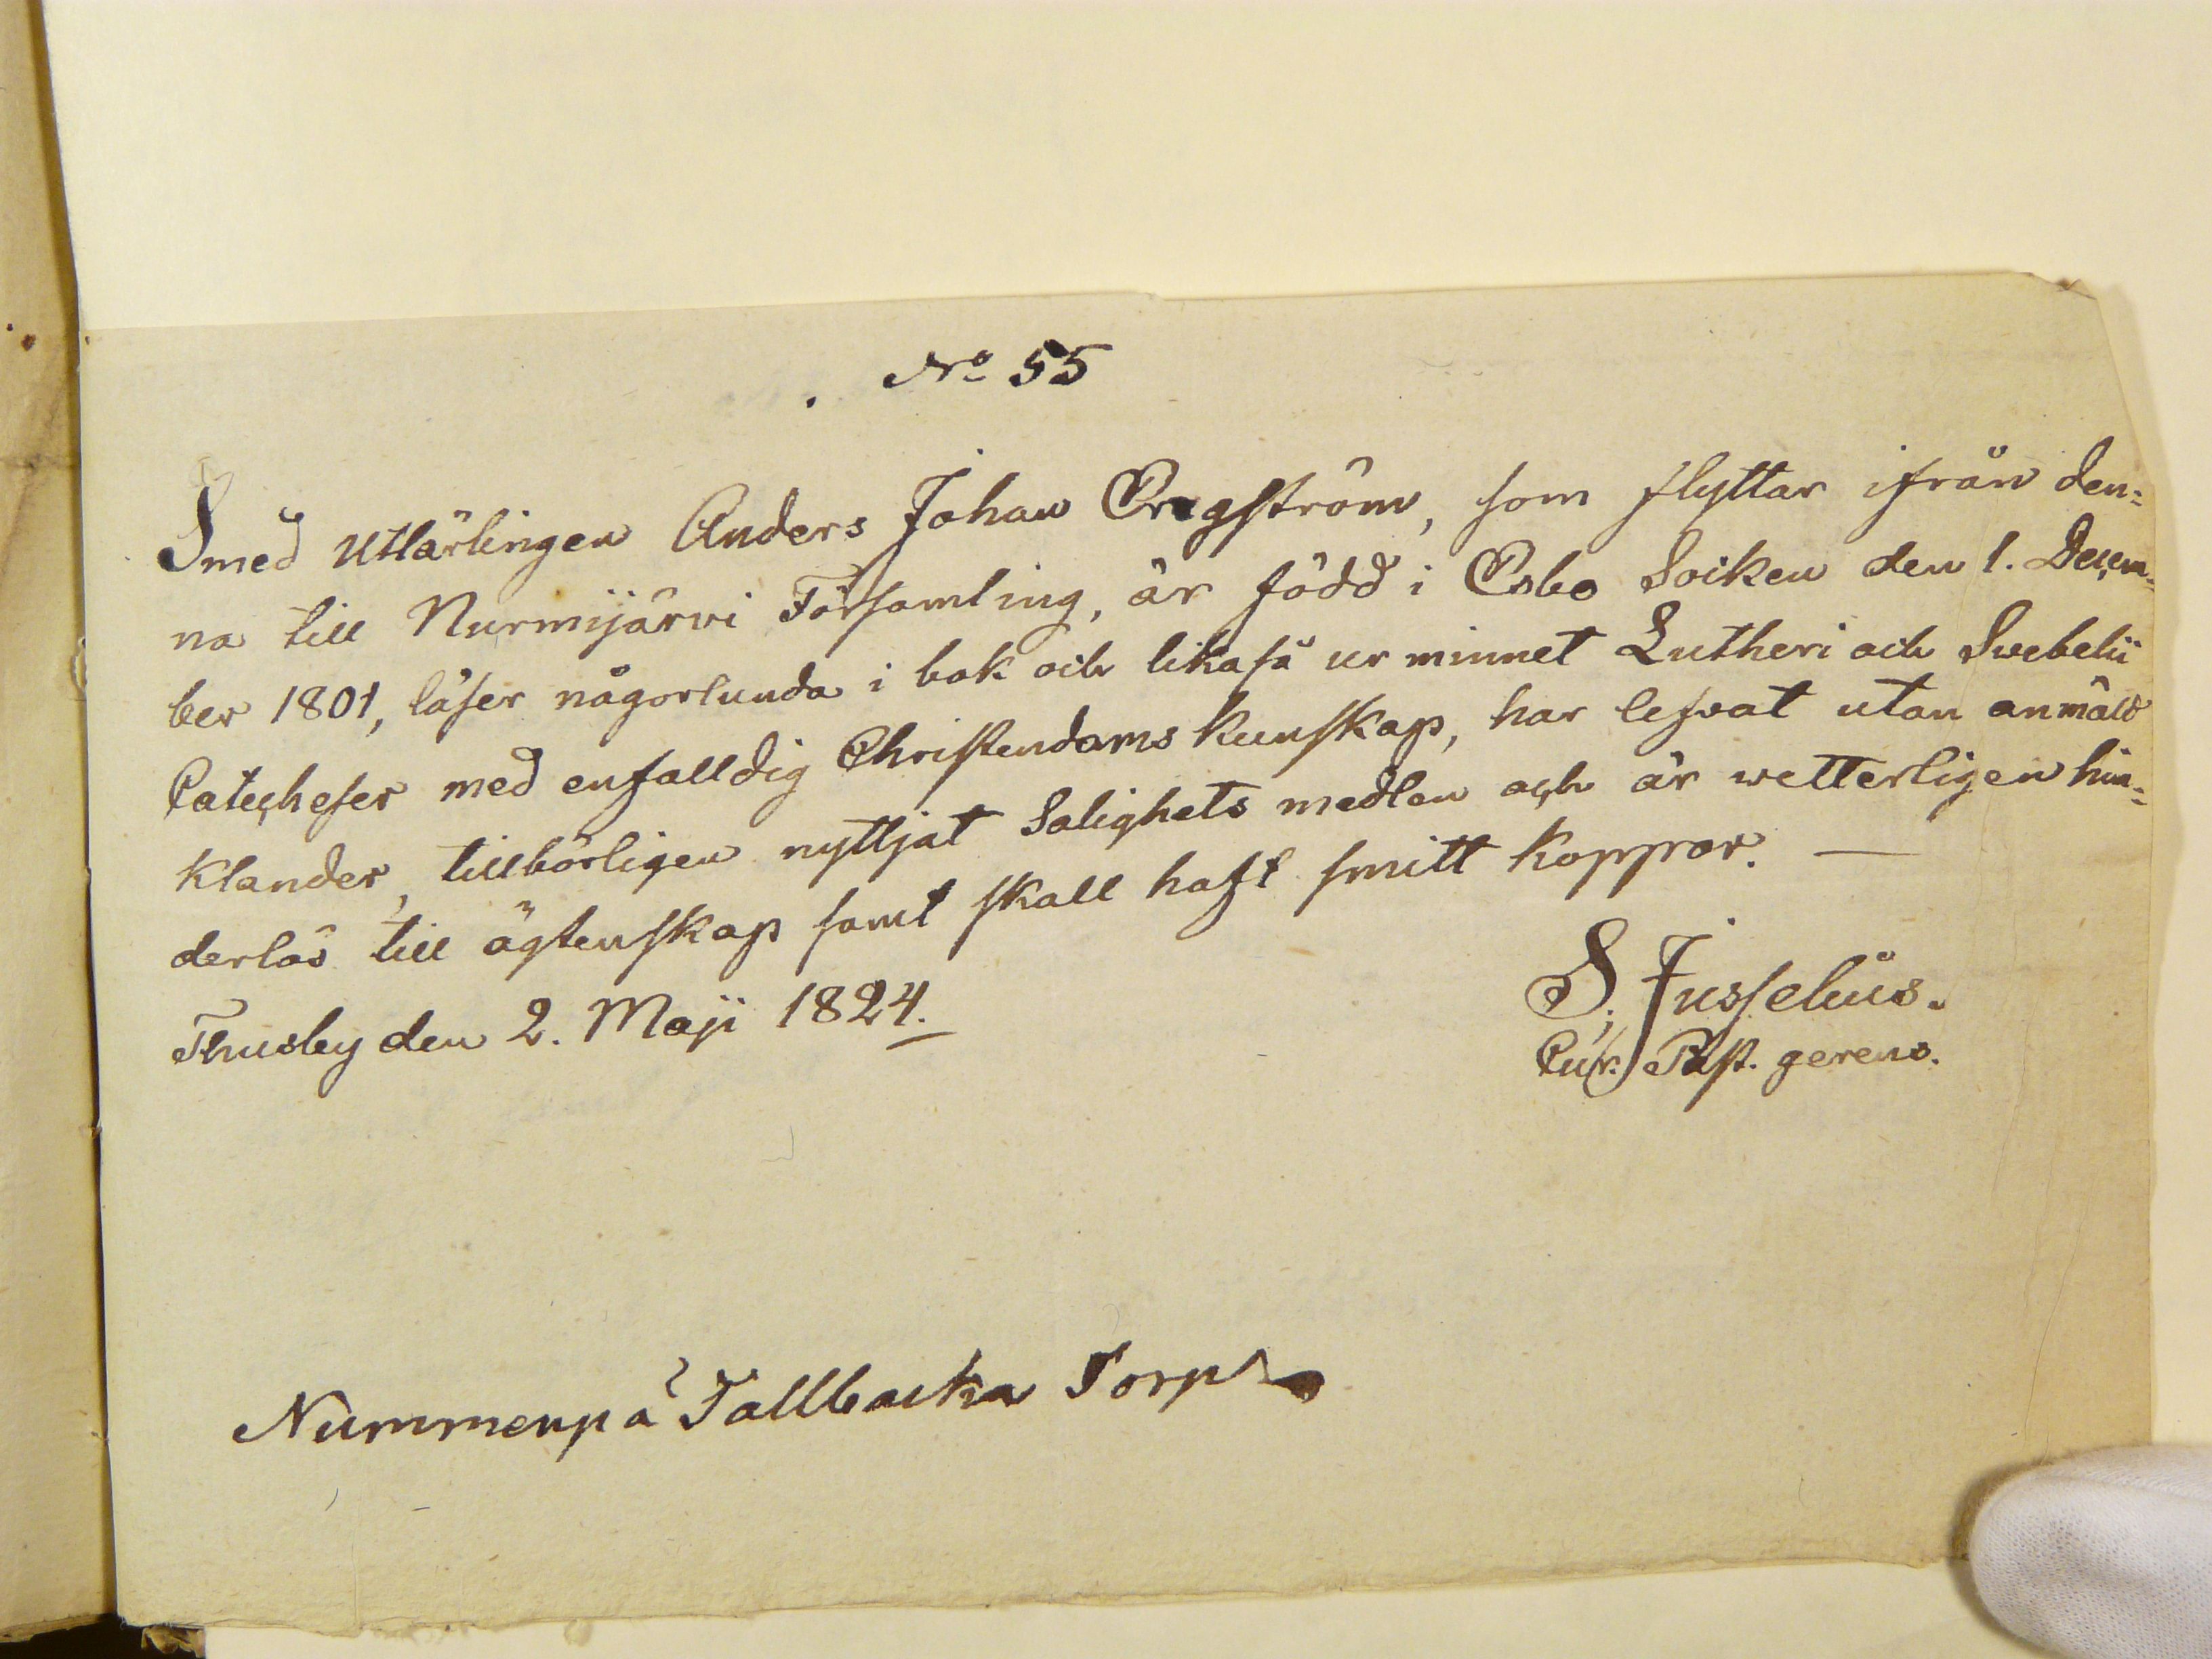 No 55
Smed Utlärlingen Anders Johan Engström, som flyttar ifrån den=
na till Nurmijärvi Församling, är född i Esbo Soiken den 1. Decem=
ber 1801, läser någorlunda i bok och likaså ur minnet Lutheri och Svebelii
Catecheser med enfalldig Christendoms kunskap, har lefvat utan anmäld
klander, tillbörligen nyttjat Salighets medlen och är wetterligen hin=
derlös till ägtenskap samt skall haft smitt koppor. —
Thusby den 2. Maji 1824.
S. Jusselius.
Cur. Past. gerens.
Nummenpä Tallbacka Torp